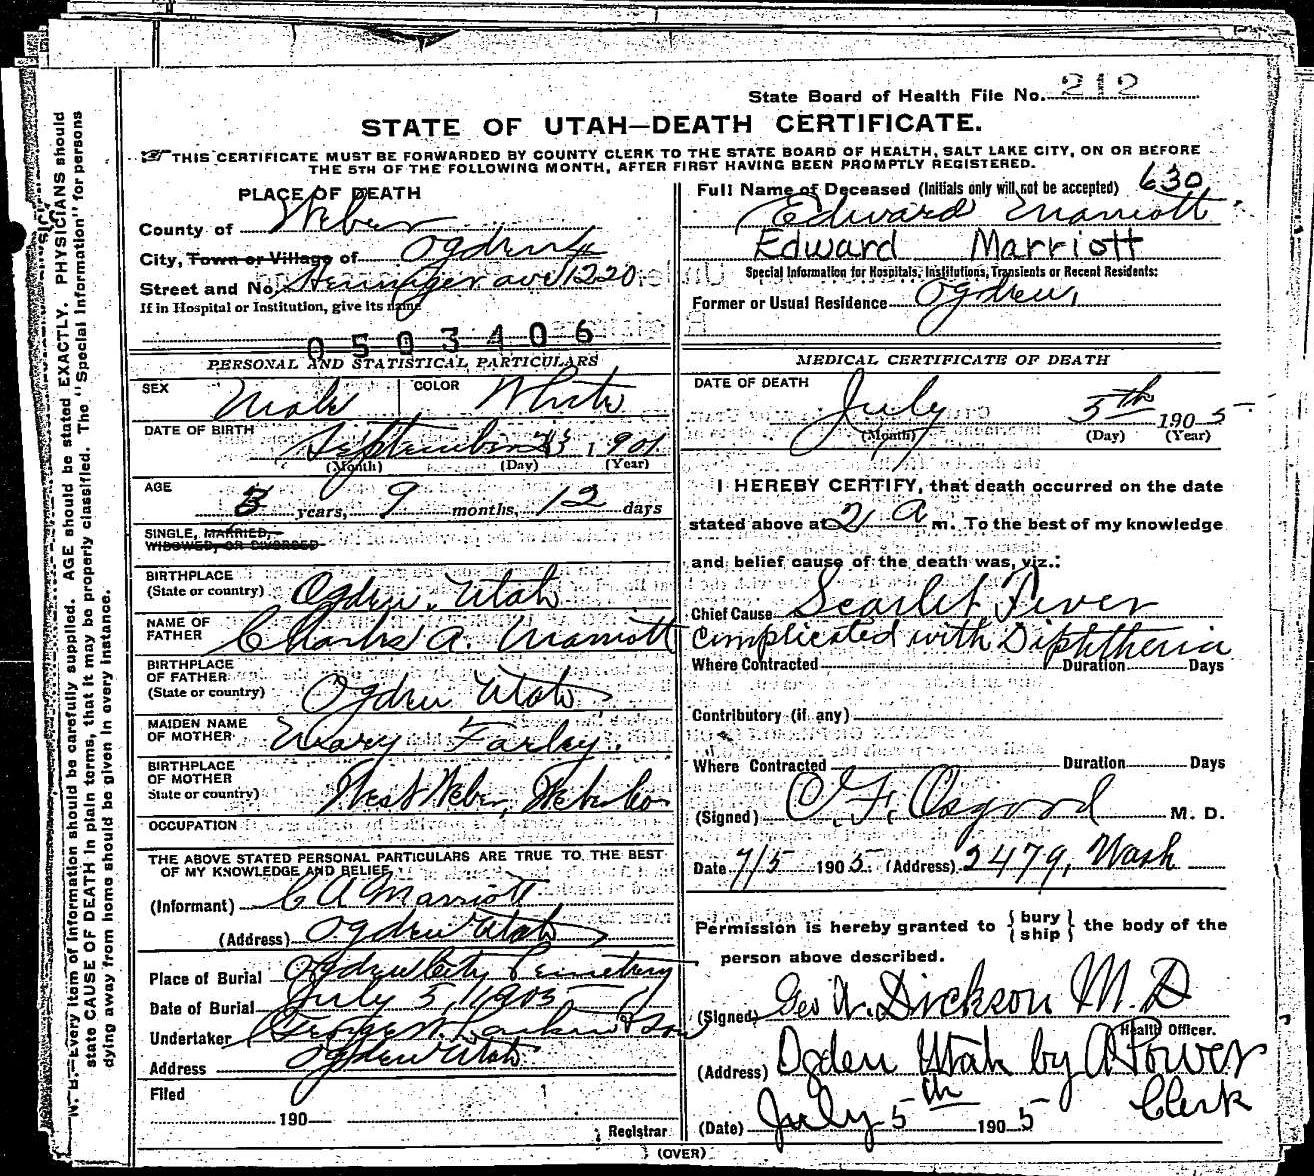 State Board of Health File No. 212
STATE OF UTAH—DEATH CERTIFICATE.
THIS CERTIFICATE MUST BE FORWARDED BY COUNTY CLERK TO THE STATE BOARD OF HEALTH, SALT LAKE CITY, ON OR BEFORE
THE 5TH OF THE FOLLOWING MONTH, AFTER FIRST HAVING BEEN PROMPTLY REGISTERED.
PLACE OF DEATH
County of Weber
City, Town or Village of Ogden
Street and No. ave 1220
If in Hospital or Institution, give its name
0503406
PERSONAL AND STATISTICAL PARTICULARS
SEX Male COLOR White
DATE OF BIRTH September 23, 1901
(Month) (Day) (Year)
AGE 3 years, 9 months, 12 days
SINGLE, MARRIED,
WIDOWED, OR DIVORCED
BIRTHPLACE
(State or country) Ogden, Utah
NAME OF
FATHER Charles A. Marriott
BIRTHPLACE
OF FATHER
(State or country) Ogden Utah
MAIDEN NAME
OF MOTHER Mary Farley.
BIRTHPLACE
OF MOTHER
State or country) West Weber, Weber Co
OCCUPATION
THE ABOVE STATED PERSONAL PARTICULARS ARE TRUE TO THE BEST
OF MY KNOWLEDGE AND BELIEF,
(Informant) C A Marriott
(Address) Ogden Utah
Place of Burial Ogden City Cemetery
Date of Burial July 5, 1905
Undertaker George W. Larkin & Son
Address Ogden Utah
Filed
190
Registrar
630
Full Name of Deceased (Initials only will not be accepted)
Edward Marriott
Edward Marriott
Special Information for Hospitals, Institutions, Transients or Recent Residents:
Former or Usual Residence Ogden,
MEDICAL CERTIFICATE OF DEATH
DATE OF DEATH
July 5th 1905
(Month) (Day) (Year)
I HEREBY CERTIFY, that death occurred on the date
stated above at 2 a m. To the best of my knowledge
and belief cause of the death was, viz.:
Chief Cause Scarlet Fever
complicated with Diphtheria
Where Contracted Duration Days
Contributory (if any)
Where Contracted Duration Days
(Signed) C. F. Osgood M. D.
Date 7/5 1905 (Address) 2479, Wash
Permission is hereby granted to { bury ship } the body of the
person above described.
(Signed) Geo W. Dickson M. D
Health Officer.
(Address) Ogden Utah by A Power
Clerk
(Date) July 5th 1905
(OVER)
N. B.—Every item of information should be carefully supplied. AGE should be stated EXACTLY. PHYSICIANS should
state CAUSE OF DEATH in plain terms, that it may be properly classified. The "Special Information" for persons
dying away from home should be given in every instance.